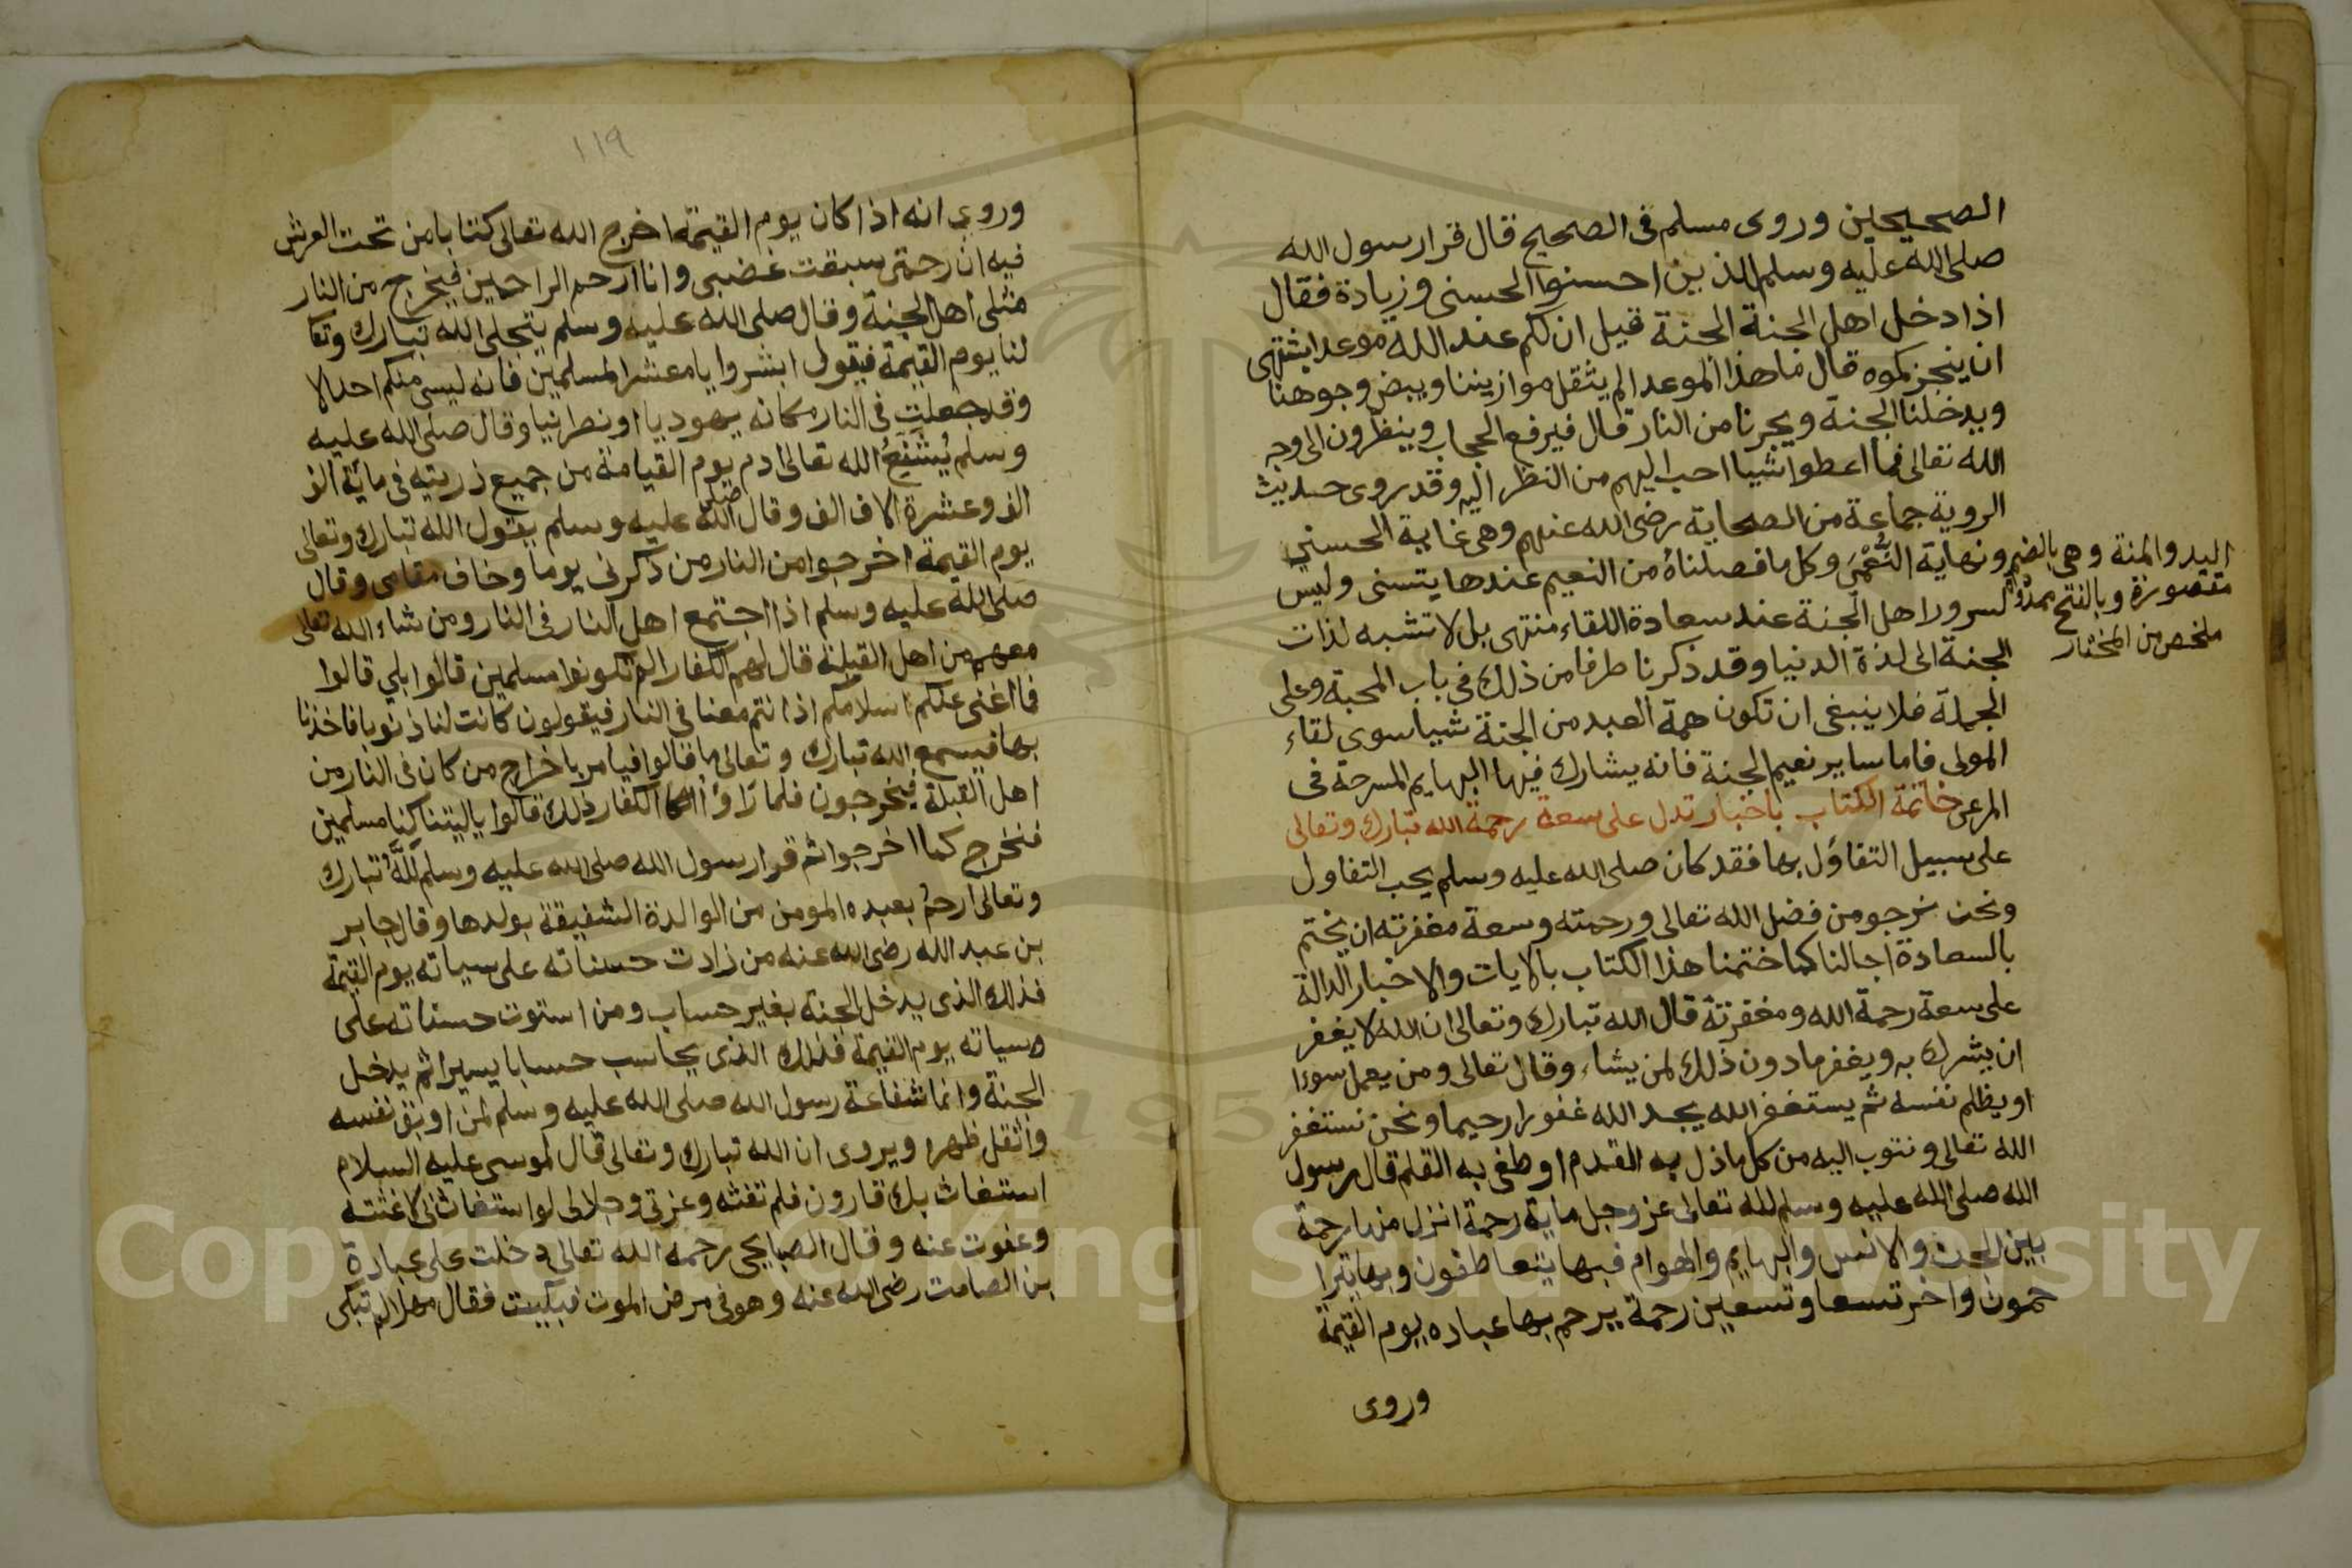 الصحيحين وروى مسلم فى الصحيح قال قرا رسول الله
صلى الله عليه وسلم الذين احسنوا الحسنى وزيادة فقال
اذا دخل اهل الجنة الجنة قيل ان لكم عند الله موعدا يشتهى
ان ينجزكموه قال ما هذا الموعد الم يثقل موازيننا ويبيض وجوهنا
ويدخلنا الجنة ويجرنا من النار قال فيرفع الحجاب وينظرون الى وجه
الله تعالى فما اعطوا شيا احب اليهم من النظر اليه وقد روى حديث
الروية جماعة من الصحابة رضى الله عنهم وهى غاية الحسنى
ونهاية النُّعْمَى وكل ما فصلناه من النعيم عندها يتسنى وليس
لسرور اهل الجنة عند سعادة اللقاء منتهى بل لا تشبه لذات
الجنة الى لذة الدنيا وقد ذكرنا طرفا من ذلك فى باب المحبة وعلى
الجملة فلا ينبغى ان تكون همة العبد من الجنة شيا سوى لقاء
المولى فاما ساير نعيم الجنة فانه يشارك فيها البهايم المسرحة فى
المرعى خاتمة الكتاب باخبار تدل على سعة رحمة الله تبارك وتعالى
على سبيل التفاؤل بها فقد كان صلى الله عليه وسلم يحب التفاول
ونحن نرجو من فضل الله تعالى ورحمته وسعة مغفرته ان يختم
بالسعادة اجالنا كما ختمنا هذا الكتاب بالايات والاخبار الدالة
على سعة رحمة الله ومغفرته قال الله تبارك وتعالى ان الله لا يغفر
ان يشرك به ويغفر ما دون ذلك لمن يشاء وقال تعالى ومن يعمل سوءا
او يظلم نفسه ثم يستغفر الله يجد الله غفورا رحيما ونحن نستغفر
الله تعالى ونتوب اليه من كل ما ذل به القدم او طغى به القلم قال رسول
الله صلى الله عليه وسلم لله تعالى عز وجل ماية رحمة انزل منها رحمة
بين الجن والانس والبهايم والهوام فبها يتعاطفون وبها يترا
حمون واخر تسعا وتسعين رحمة يرحم بها عباده يوم القيمة
وروى
اليد والمنة وهى بالضم
مقصورة وبالفتح ممدودة
ملخص من المختار
١١٩
وروى انه اذا كان يوم القيمة اخرج الله تعالى كتابا من تحت العرش
فيه ان رحمتى سبقت غضبى وانا ارحم الراحمين فيخرج من النار
مثلى اهل الجنة وقال صلى الله عليه وسلم يتجلى الله تبارك وتعا
لنا يوم القيمة فيقول ابشروا يا معشر المسلمين فانه ليس منكم احد الا
وقد جعلت فى النار مكانه يهوديا او نصرانيا وقال صلى الله عليه
وسلم يُشَفِّعُ الله تعالى ادم يوم القيامة من جميع ذريته فى ماية الف
الف وعشرة الاف الف وقال صلى الله عليه وسلم يقول الله تبارك وتعالى
يوم القيمة اخرجوا من النار من ذكرنى يوما وخاف مقامى وقال
صلى الله عليه وسلم اذا اجتمع اهل النار فى النار ومن شاء الله تعالى
معهم من اهل القبلة قال لهم الكفار الم تكونوا مسلمين قالوا بلى قالوا
فما اغنى عنكم اسلامكم اذ انتم معنا فى النار فيقولون كانت لنا ذنوبا فاخذنا
بها فيسمع الله تبارك وتعالى ما قالوا فيامر باخراج من كان فى النار من
اهل القبلة فيخرجون فلما رَاوْا الكفار ذلك قالوا ياليتنا كنا مسلمين
فنخرج كما اخرجوا ثم قرا رسول الله صلى الله عليه وسلم للَّهُ تبارك
وتعالى ارحم بعبده المومن من الوالدة الشفيقة بولدها وقال جابر
بن عبد الله رضى الله عنه من زادت حسناته على سياته يوم القيمة
فذلك الذى يدخل الجنة بغير حساب ومن استوت حسناته على
وسياته يوم القيمة فذلك الذى يحاسب حسابا يسيرا ثم يدخل
الجنة وانما شفاعة رسول الله صلى الله عليه وسلم لمن اوبق نفسه
واثقل ظهره ويروى ان الله تبارك وتعالى قال لموسى عليه السلام
استغاث بك قارون فلم تغثه وعزتى وجلالى لو استغاث بى لاغثته
وعفوت عنه وقال الصنابحى رحمه الله تعالى دخلت على عبادة
بن الصامت رضى الله عنه وهو فى مرض الموت فبكيت فقال مهلا لم تبكى
Copyright © King Saud University
195